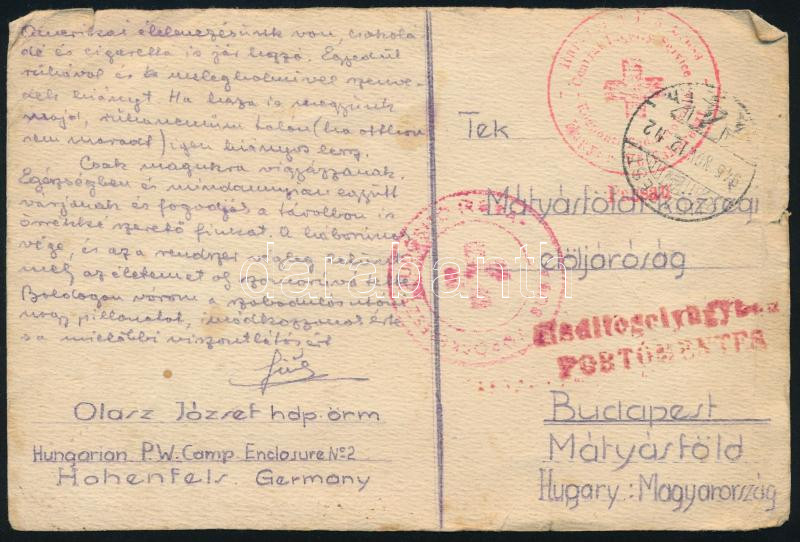 Amerikai élelmezésünk van, csokolá
dé és cigaretta is jár hozzá. Egyedül
ruhával és meleg holmivel szenve-
dek hiányt. Ha haza is megyünk
majd, ruhaneműm talán (ha otthon
nem maradt) igen hiányos lesz.
Csak magukra vigyázzanak.
Egészségben és mindannyian együtt
várjanak és fogadják a távolban is
örökké szerető fiukat. A háborúnak
vége, és az a rendszer végleg
mely az életemet oly szomorúvá tette
Boldogan várom a szabadulás utáni
nagy pillanatot, imádkozzanak érte
s a mielőbbi viszontlátásért
Olasz József hdp. őrm
Hungarian P.W. Camp Enclosure No 2
Hohenfels Germany
Tek
Mátyásföld Községi
elöljáróság
Hadifogolyügyben
PORTÓMENTES
Budapest
Mátyásföld
Hugary: Magyarország
darabanth